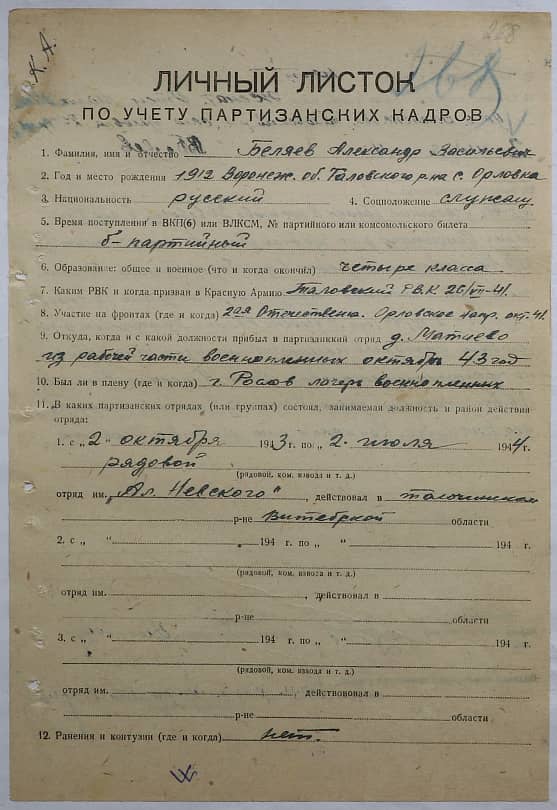 К. А.
268
ЛИЧНЫЙ ЛИСТОК
ПО УЧЕТУ ПАРТИЗАНСКИХ КАДРОВ
1. Фамилия, имя и отчество Беляев Александр Васильевич
2. Год и место рождения 1912 Воронеж. об. Таловского р-на с. Орловка
3. Национальность русский 4. Соцположение служащ
5. Время поступления в ВКП(б) или ВЛКСМ, № партийного или комсомольского билета
б-партийный
6. Образование: общее и военное (что и когда окончил) четыре класса
7. Каким РВК и когда призван в Красную Армию Таловский РВК 26/VII-41.
8. Участие на фронтах (где и когда) 2ая Отечественн. Орловское напр. окт-41.
9. Откуда, когда и с какой должности прибыл в партизанский отряд д.
из рабочей части военнопленных октябрь 43 год
10. Был ли в плену (где и когда) г. лагерь военнопленных
11. В каких партизанских отрядах (или группах) состоял, занимаемая должность и район действия
отряда:
1. с „2" октября 1943 г. по „2" июля 1944 г.
рядовой
(рядовой, ком. взвода и т. д.)
отряд им. „Ал. Невского", действовал в толочинском
р-не Витебской области
2. с „ " 194 г. по „ " 194 г.
(рядовой, ком. взвоза и т. д.)
отряд им. , действовал в
р-не области
3. с „ " 194 г. по „ " 194 г.
(рядовой, ком. взвода и т. д.)
отряд им. , действовал в
р-не области
12. Ранения и контузии (где и когда) нет.